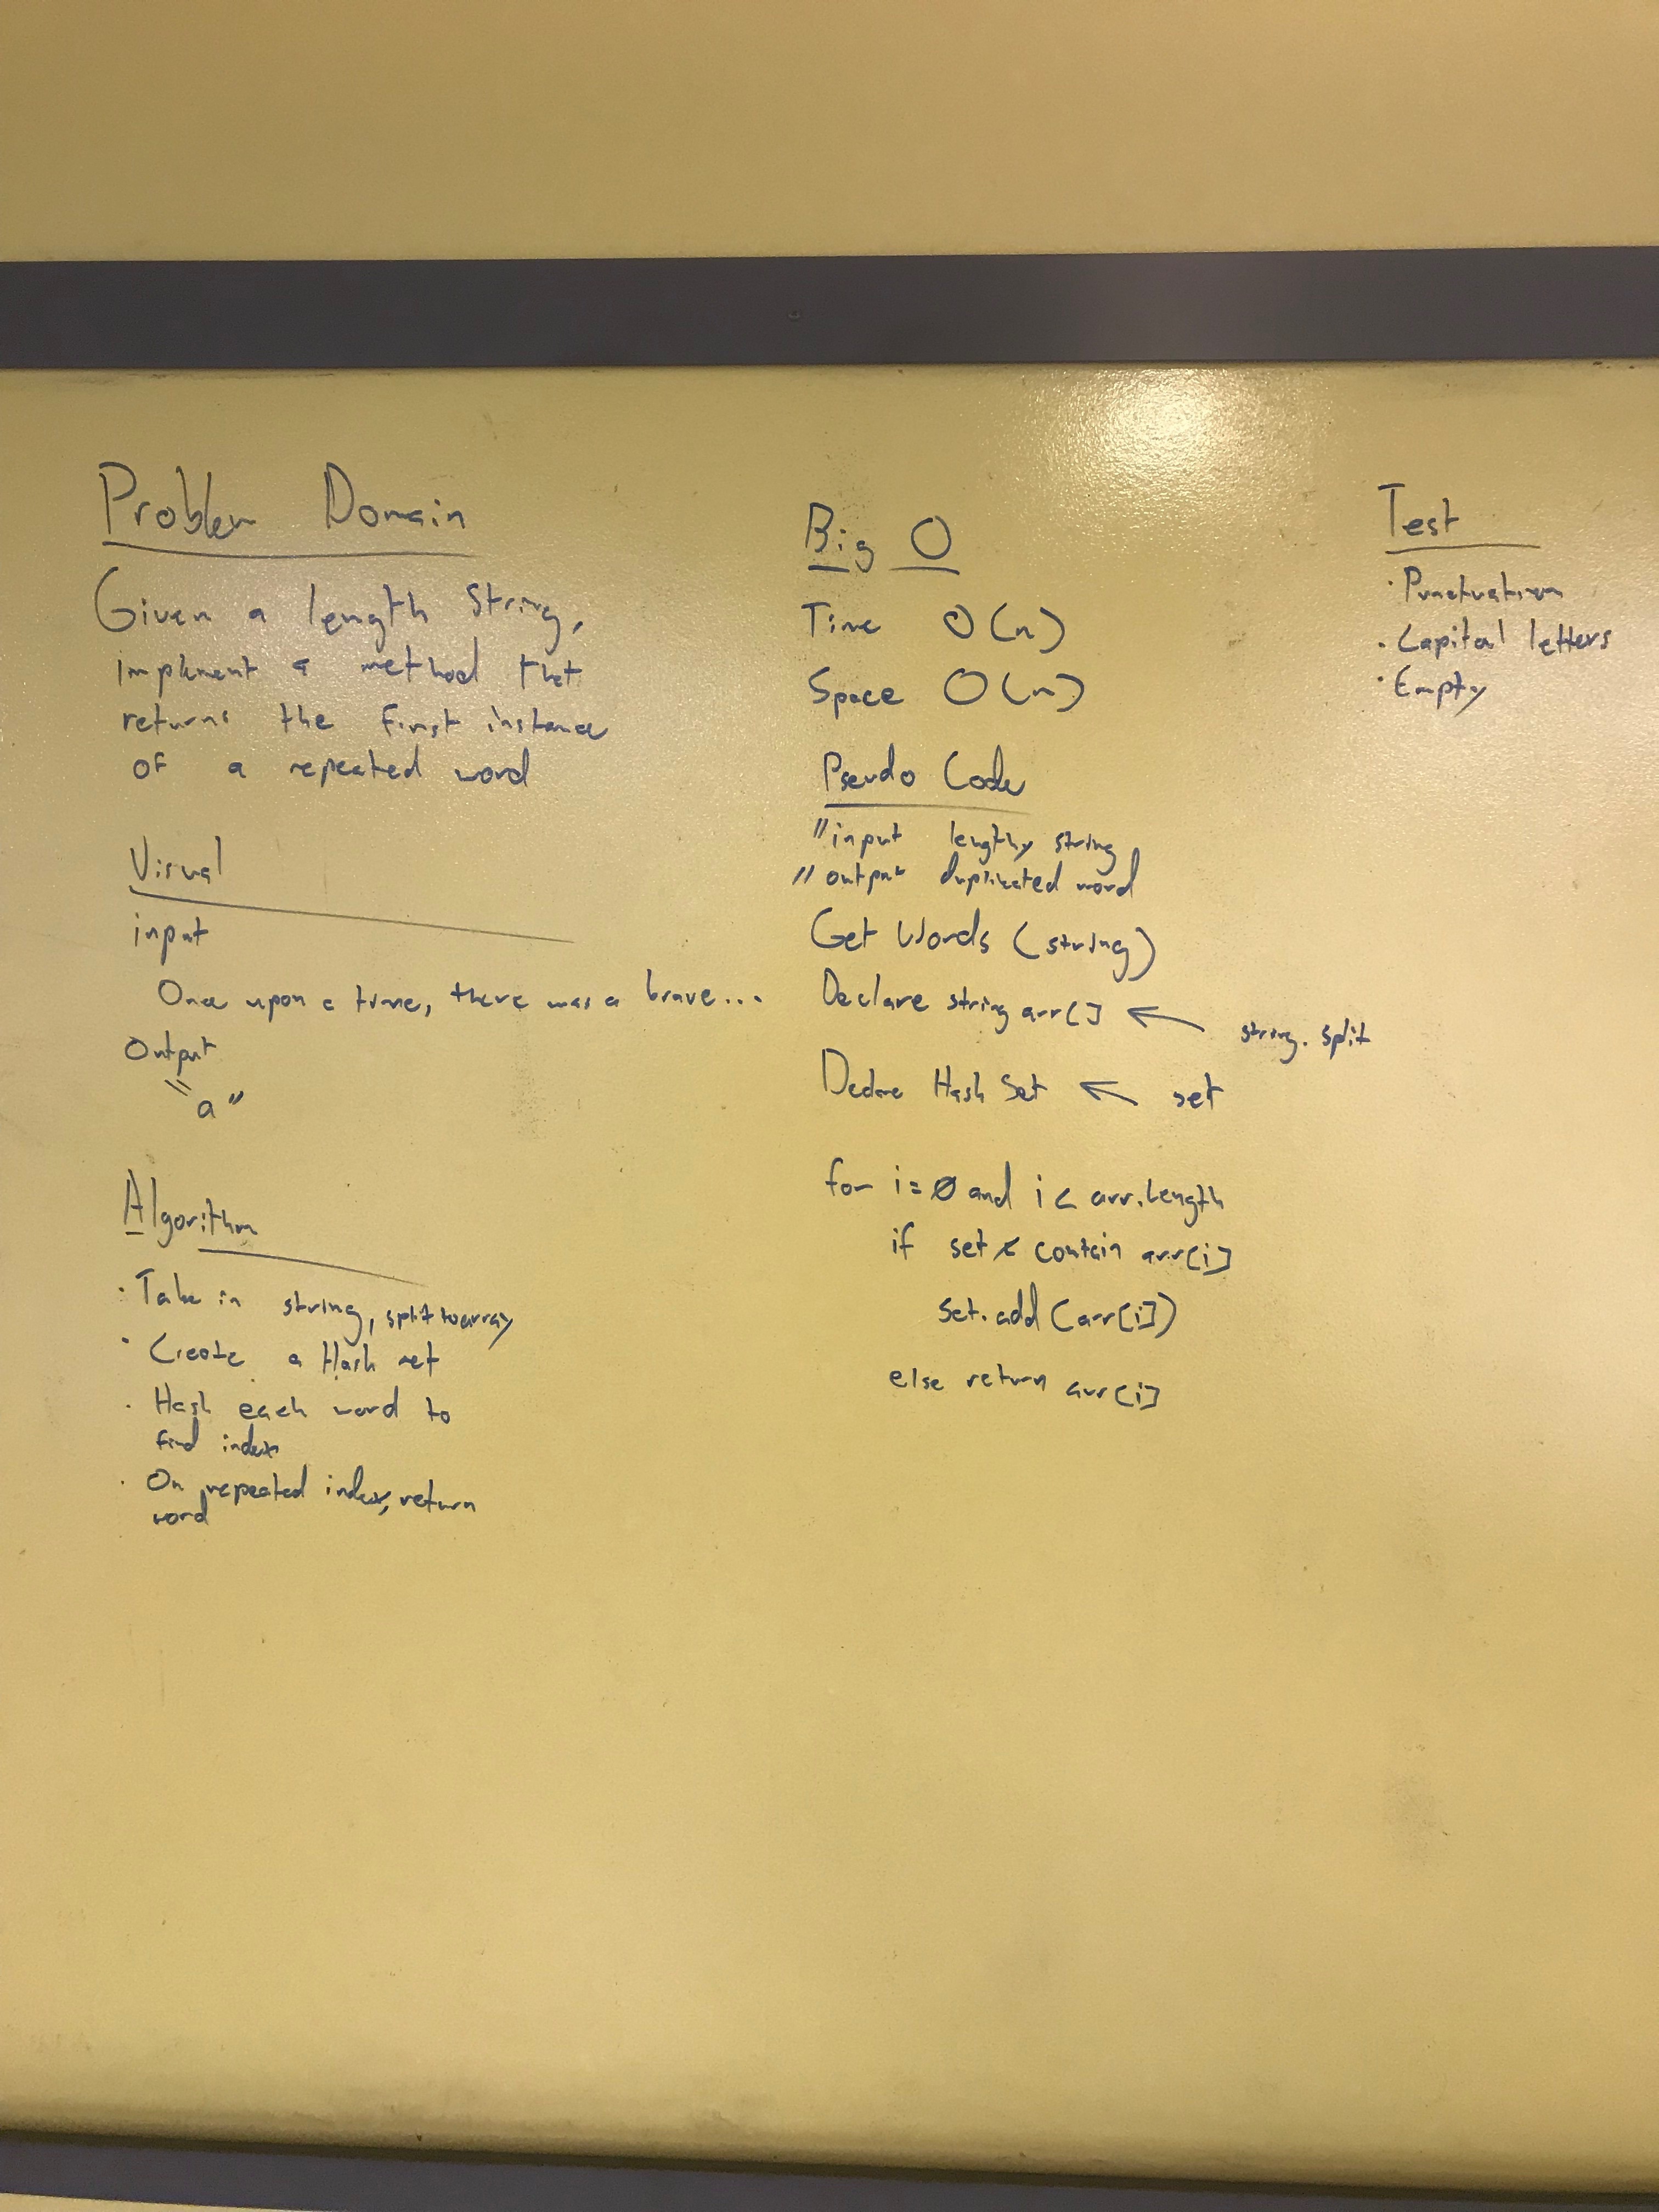 Problem Domain
Given a length string,
implement a method that
returns the first instance
of a repeated word
Visual
input
Once upon a time, there was a brave...
Output
"a"
Algorithm
· Take in string, split to array
· Create a Hash set
· Hash each word to
find index
· On repeated index, return
word
Big O
Time O(n)
Space O(n)
Pseudo Code
// input lengthy string
// output duplicated word
Get Words (string)
Declare string arr[] ← string.split
Declare Hash Set ← set
for i = 0 and i < arr.length
if set contain arr[i]
set.add (arr[i])
else return arr[i]
Test
· Punctuation
· Capital letters
· Empty